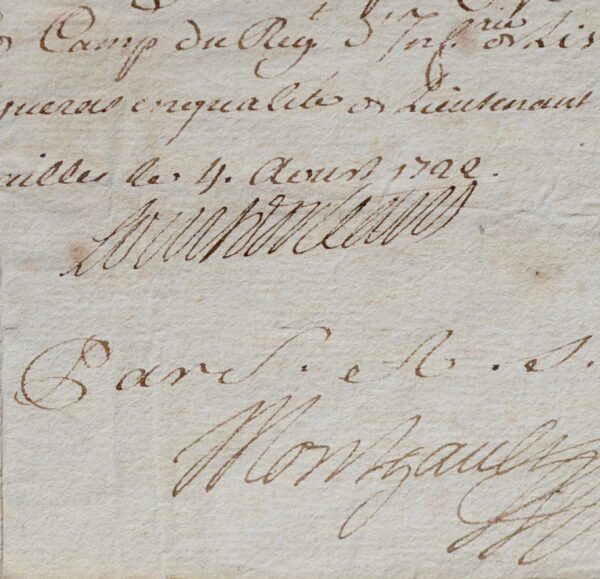 Camp du Reg.t d'Inf.rie de Lis
gueras enqualité de Lieutenant
ailles le 4. Aoust 1722.
Louis d'orleans
Par S. A. S.
Montgault